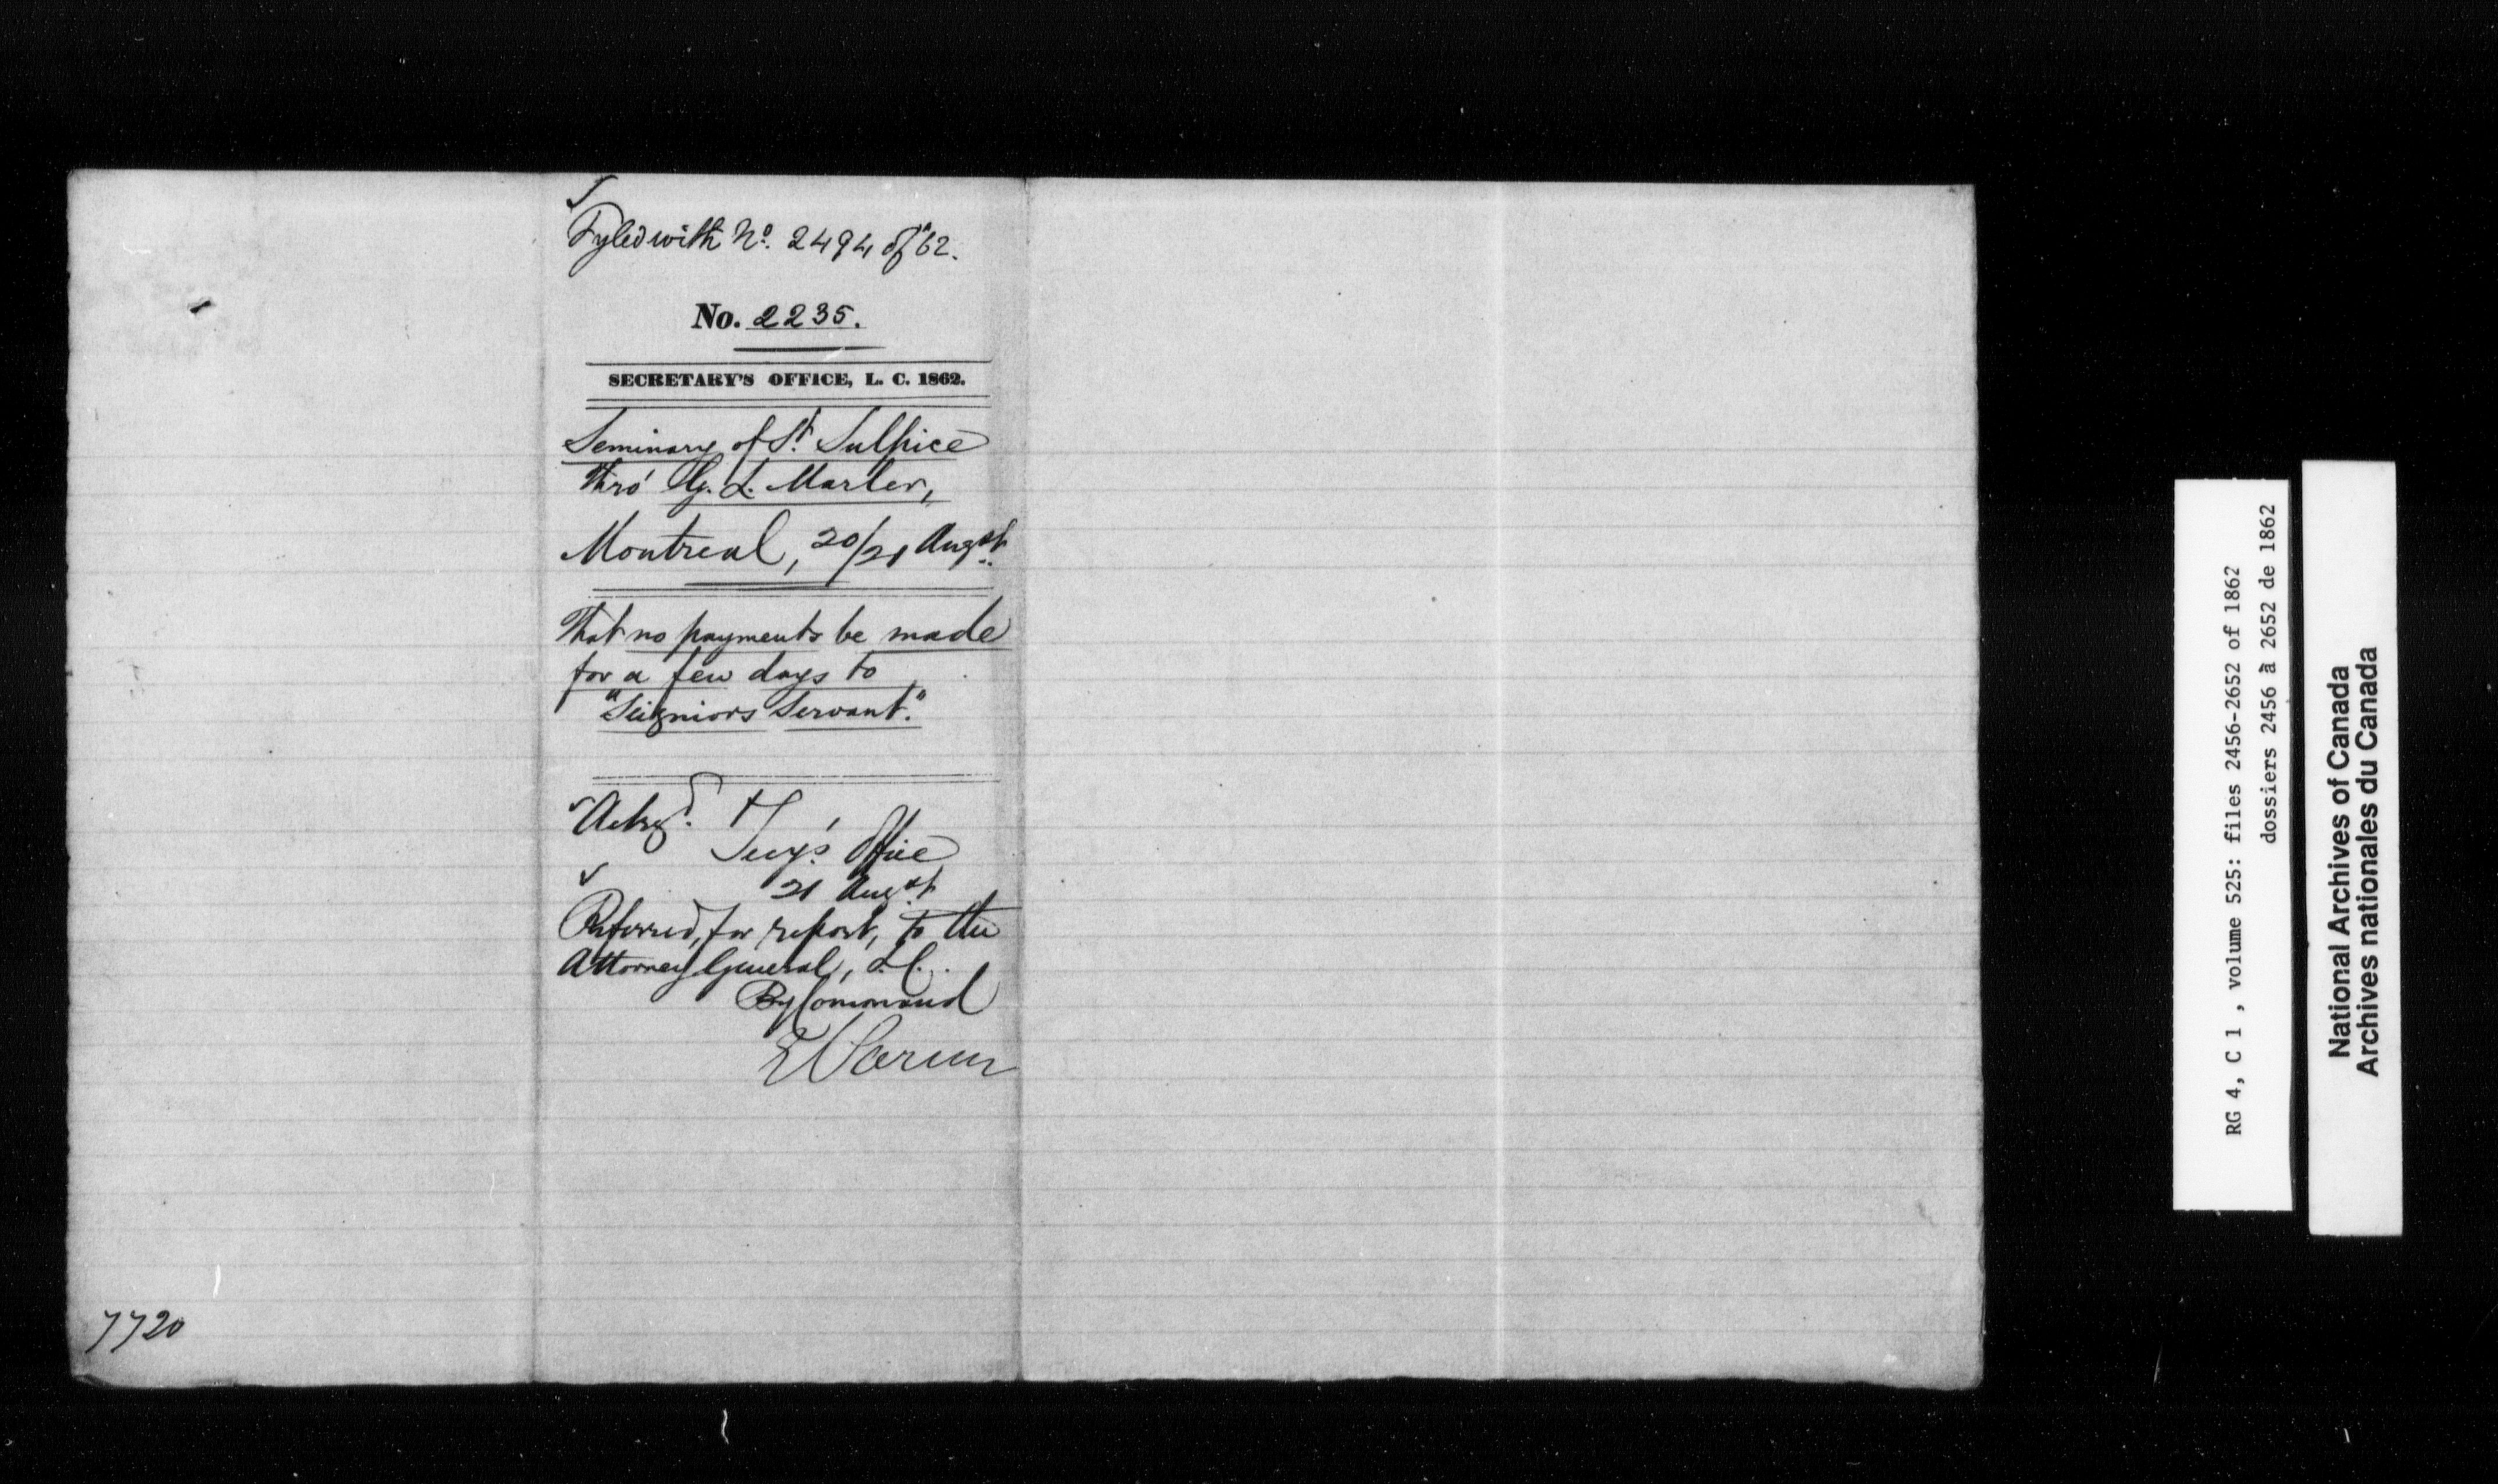 Fyled with No. 2494 of "62.
No. 2235.
SECRETARY'S OFFICE, L. C. 1862.
Seminary of St. Sulpice
Thro' G. L. Marler,
Montreal, 20/21 Augst.
That no payments be made
for a few days to
"Seigniors Servant."
Ackgd.
Secy's Office
21 Augst.
Referred, for report, to the
Attorney General, L.C.
By Command
E Parent
7720
RG 4, C 1 , volume 525: files 2456-2652 of 1862
dossiers 2456 à 2652 de 1862
National Archives of Canada
Archives nationales du Canada